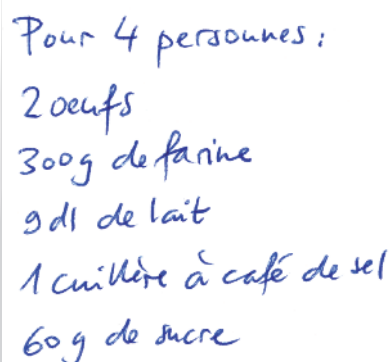 Pour 4 personnes :
2 oeufs
300g de farine
9 dl de lait
1 cuillère à café de sel
60 g de sucre